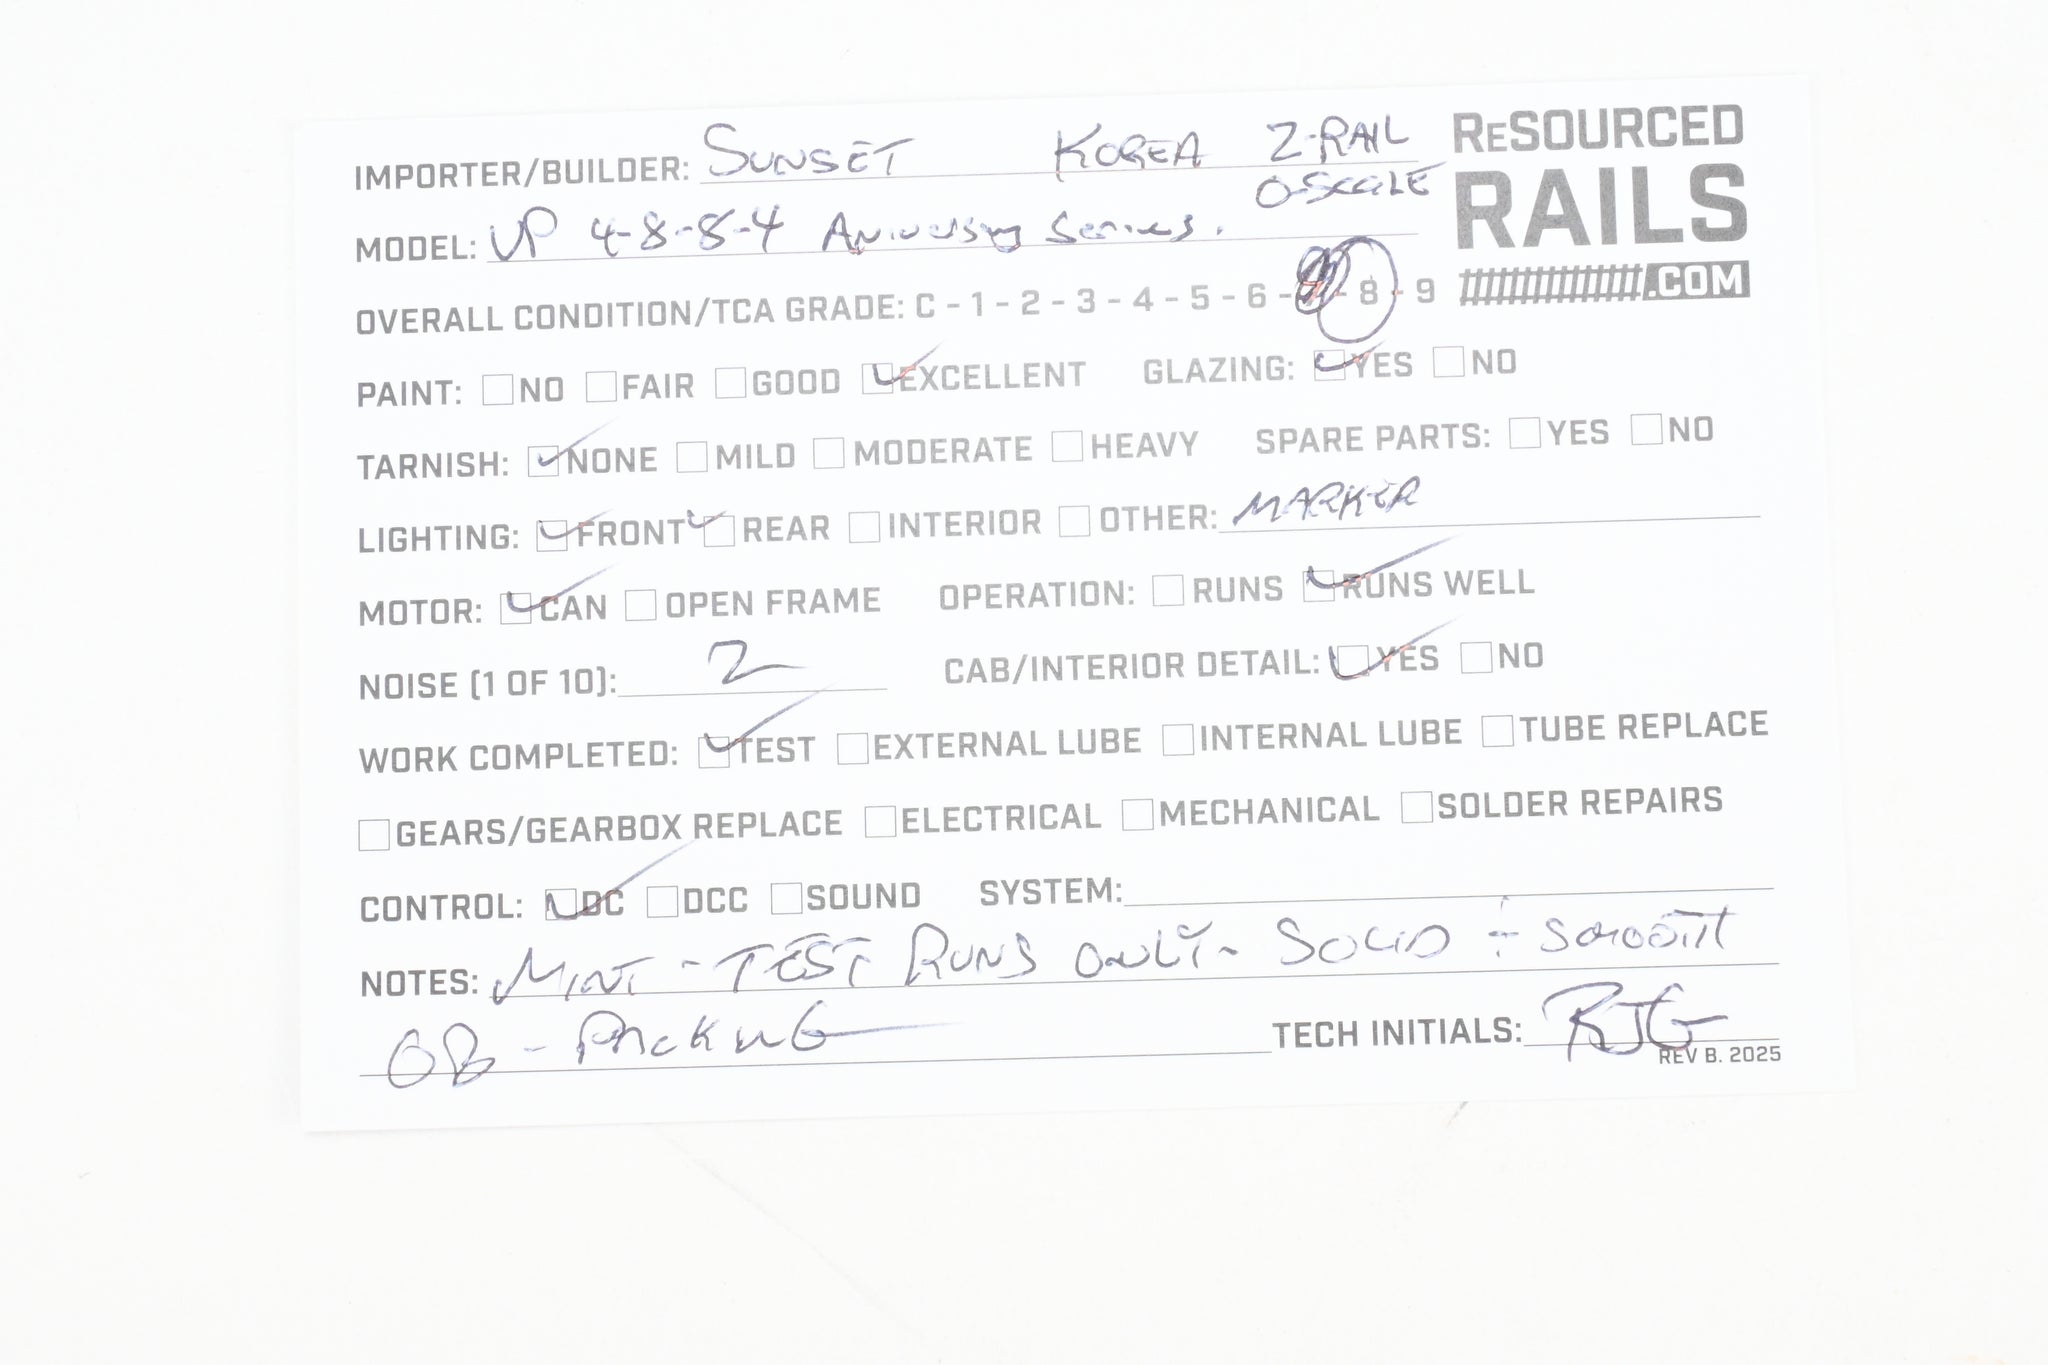 IMPORTER/BUILDER: SUNSET KOREA 2-RAIL
O-SCALE
ReSOURCED
RAILS
.COM
MODEL: UP 4-8-8-4 Aniversary Series.
OVERALL CONDITION/TCA GRADE: C - 1 - 2 - 3 - 4 - 5 - 6 - 7 - 8 - 9
PAINT: NO FAIR GOOD EXCELLENT GLAZING: YES NO
TARNISH: NONE MILD MODERATE HEAVY SPARE PARTS: YES NO
LIGHTING: FRONT REAR INTERIOR OTHER: MARKER
MOTOR: CAN OPEN FRAME OPERATION: RUNS RUNS WELL
NOISE (1 OF 10): 2 CAB/INTERIOR DETAIL: YES NO
WORK COMPLETED: TEST EXTERNAL LUBE INTERNAL LUBE TUBE REPLACE
GEARS/GEARBOX REPLACE ELECTRICAL MECHANICAL SOLDER REPAIRS
CONTROL: DC DCC SOUND SYSTEM:
NOTES: MINT - TEST RUNS ONLY - SOLID + SMOOTH
OB - PACKING TECH INITIALS: RJG
REV B. 2025